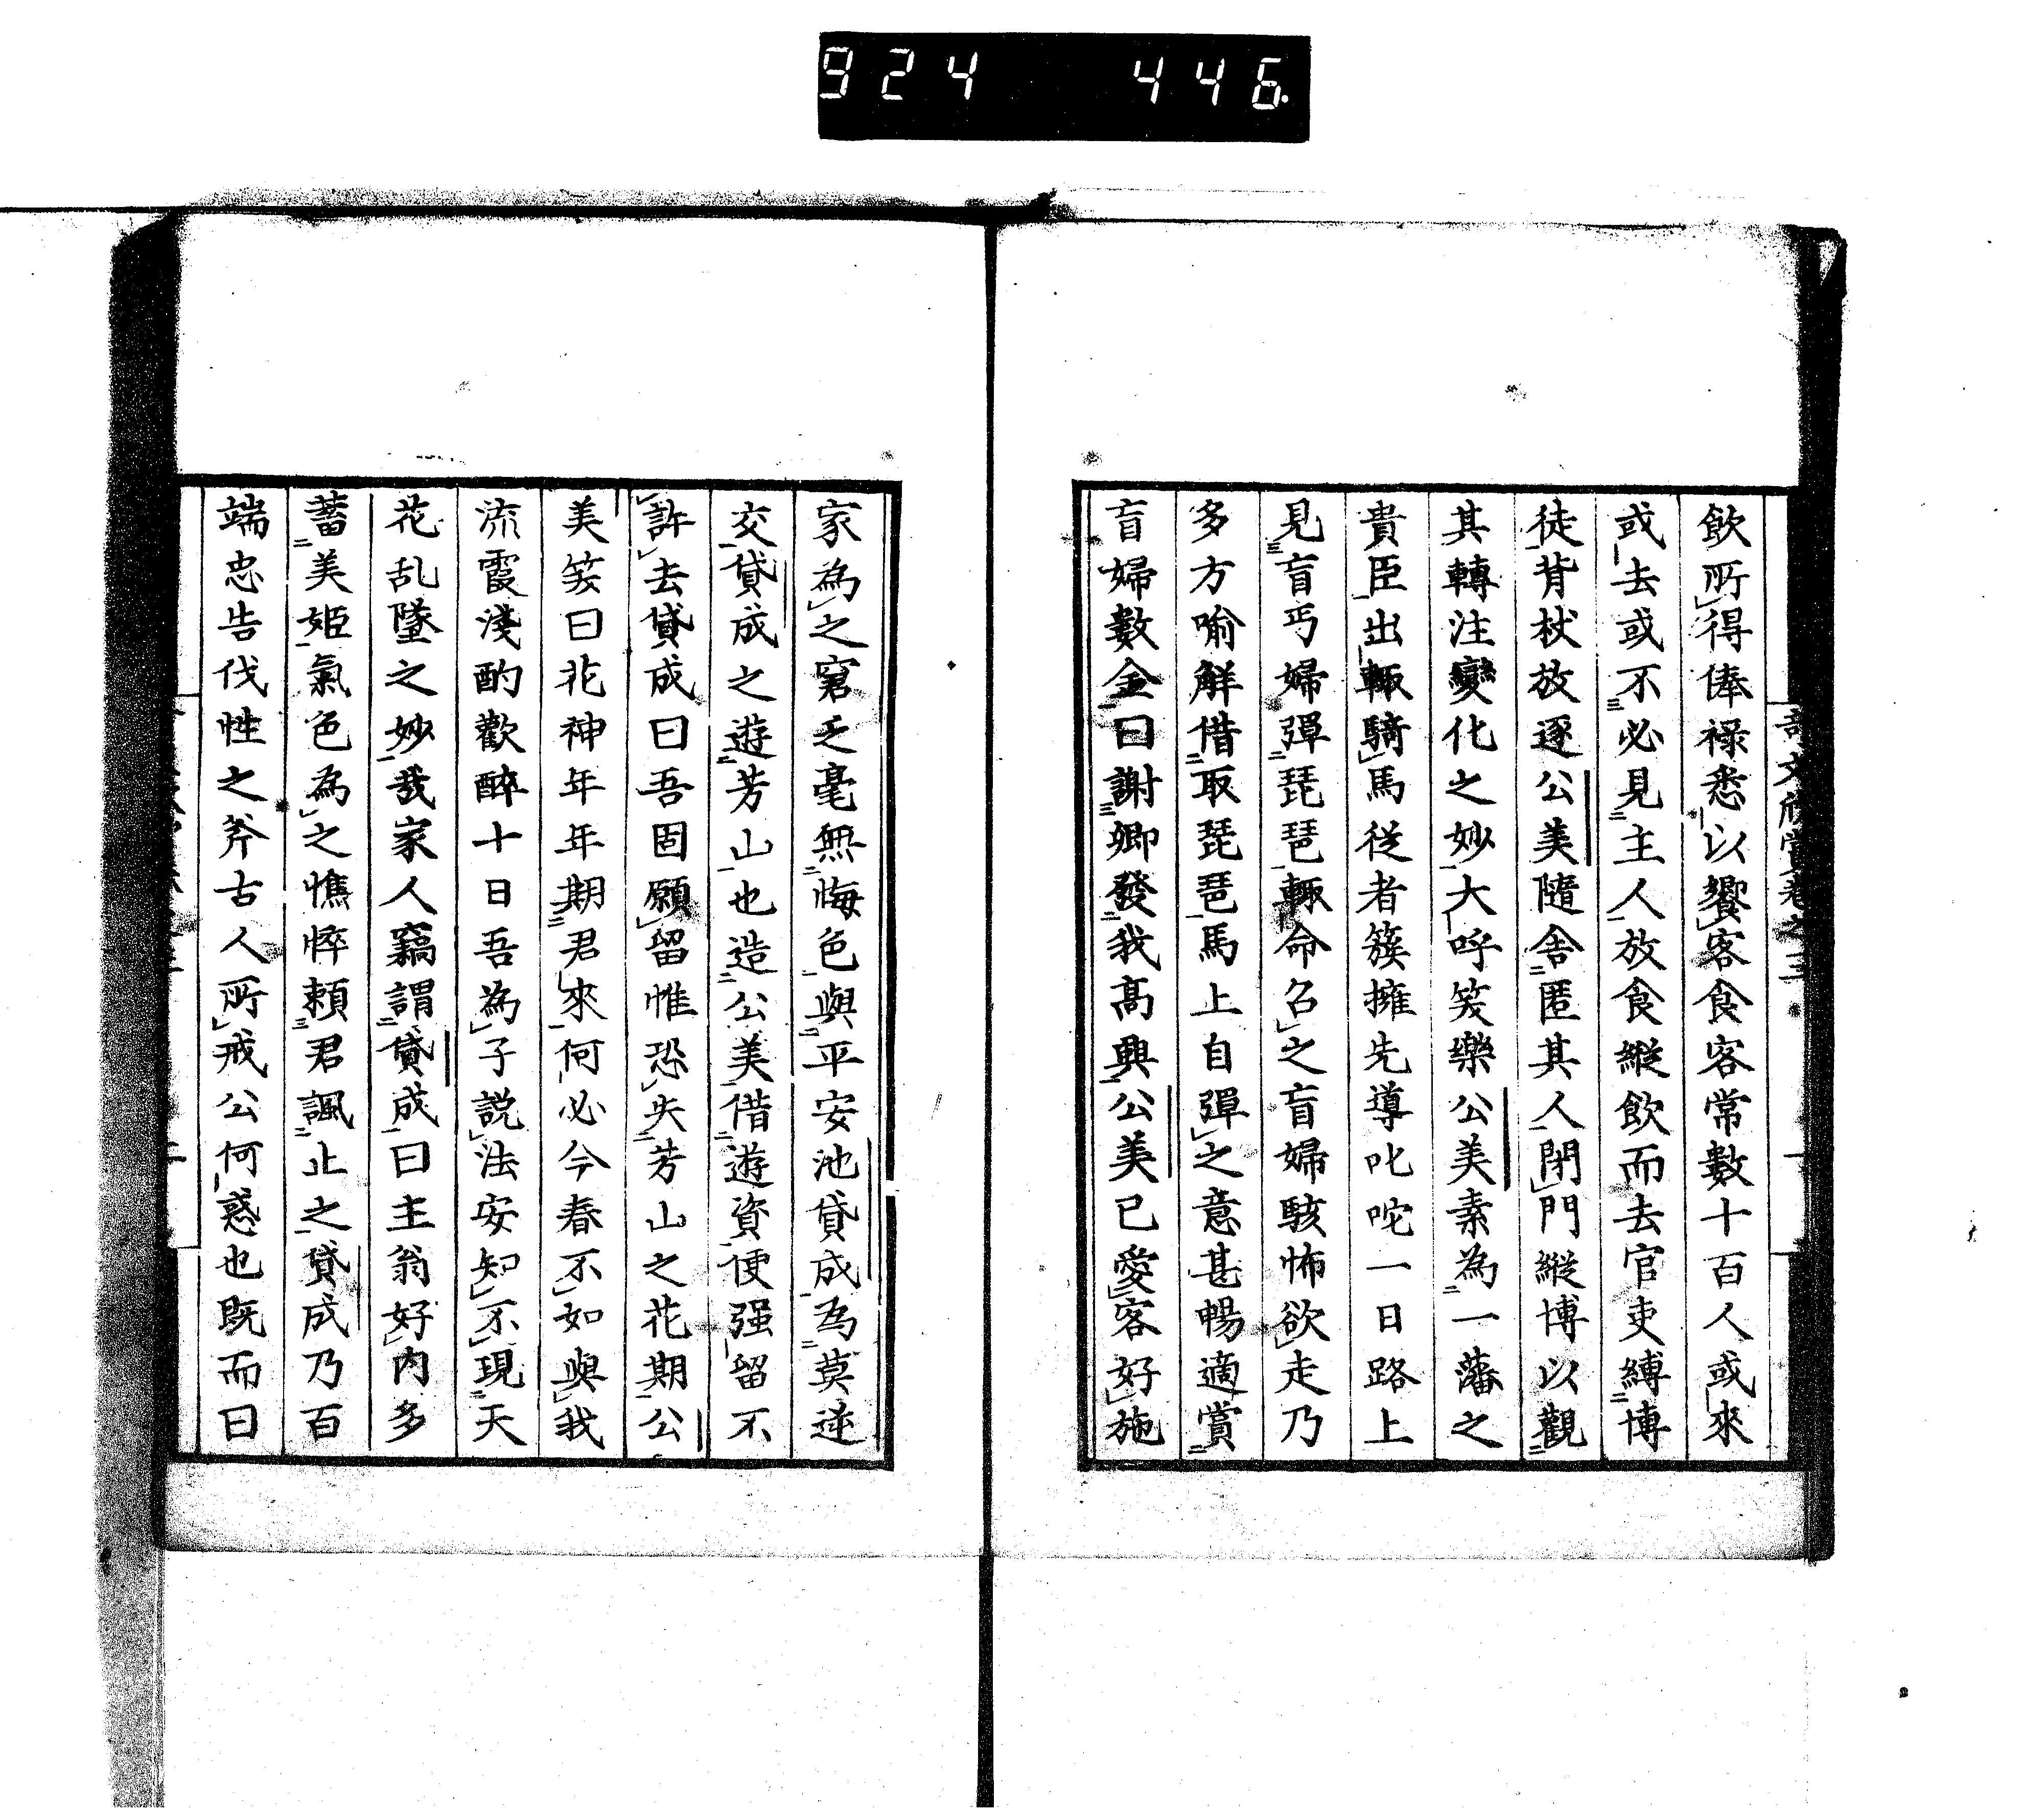 924 446
奇文欣賞卷之三
飲所得俸禄悉以饗客食客常數十百人或來
或去或不必見主人放食縦飲而去官吏縛博
徒背杖放逐公美隨舎匿其人閉門縦博以觀
其轉注變化之妙大呼笑樂公美素為一藩之
貴臣出輙騎馬從者簇擁先導叱咜一日路上
見盲丐婦彈琵琶輙命召之盲婦駭怖欲走乃
多方喻觧借取琵琶馬上自彈之意甚暢適賞
盲婦數金曰謝卿發我髙興公美已愛客好施
家為之窮乏毫無悔色與平安池貸成為莫逆
交貸成之遊芳山也造公美借遊資便强留不
許去貸成曰吾固願留惟恐失芳山之花期公
美笑曰花神年年期君來何必今春不如與我
流霞淺酌歡醉十日吾為子説法安知不現天
花乱墜之妙哉家人竊謂貸成曰主翁好内多
蓄美姫氣色為之憔悴頼君諷止之貸成乃百
端忠告伐性之斧古人所戒公何惑也既而曰